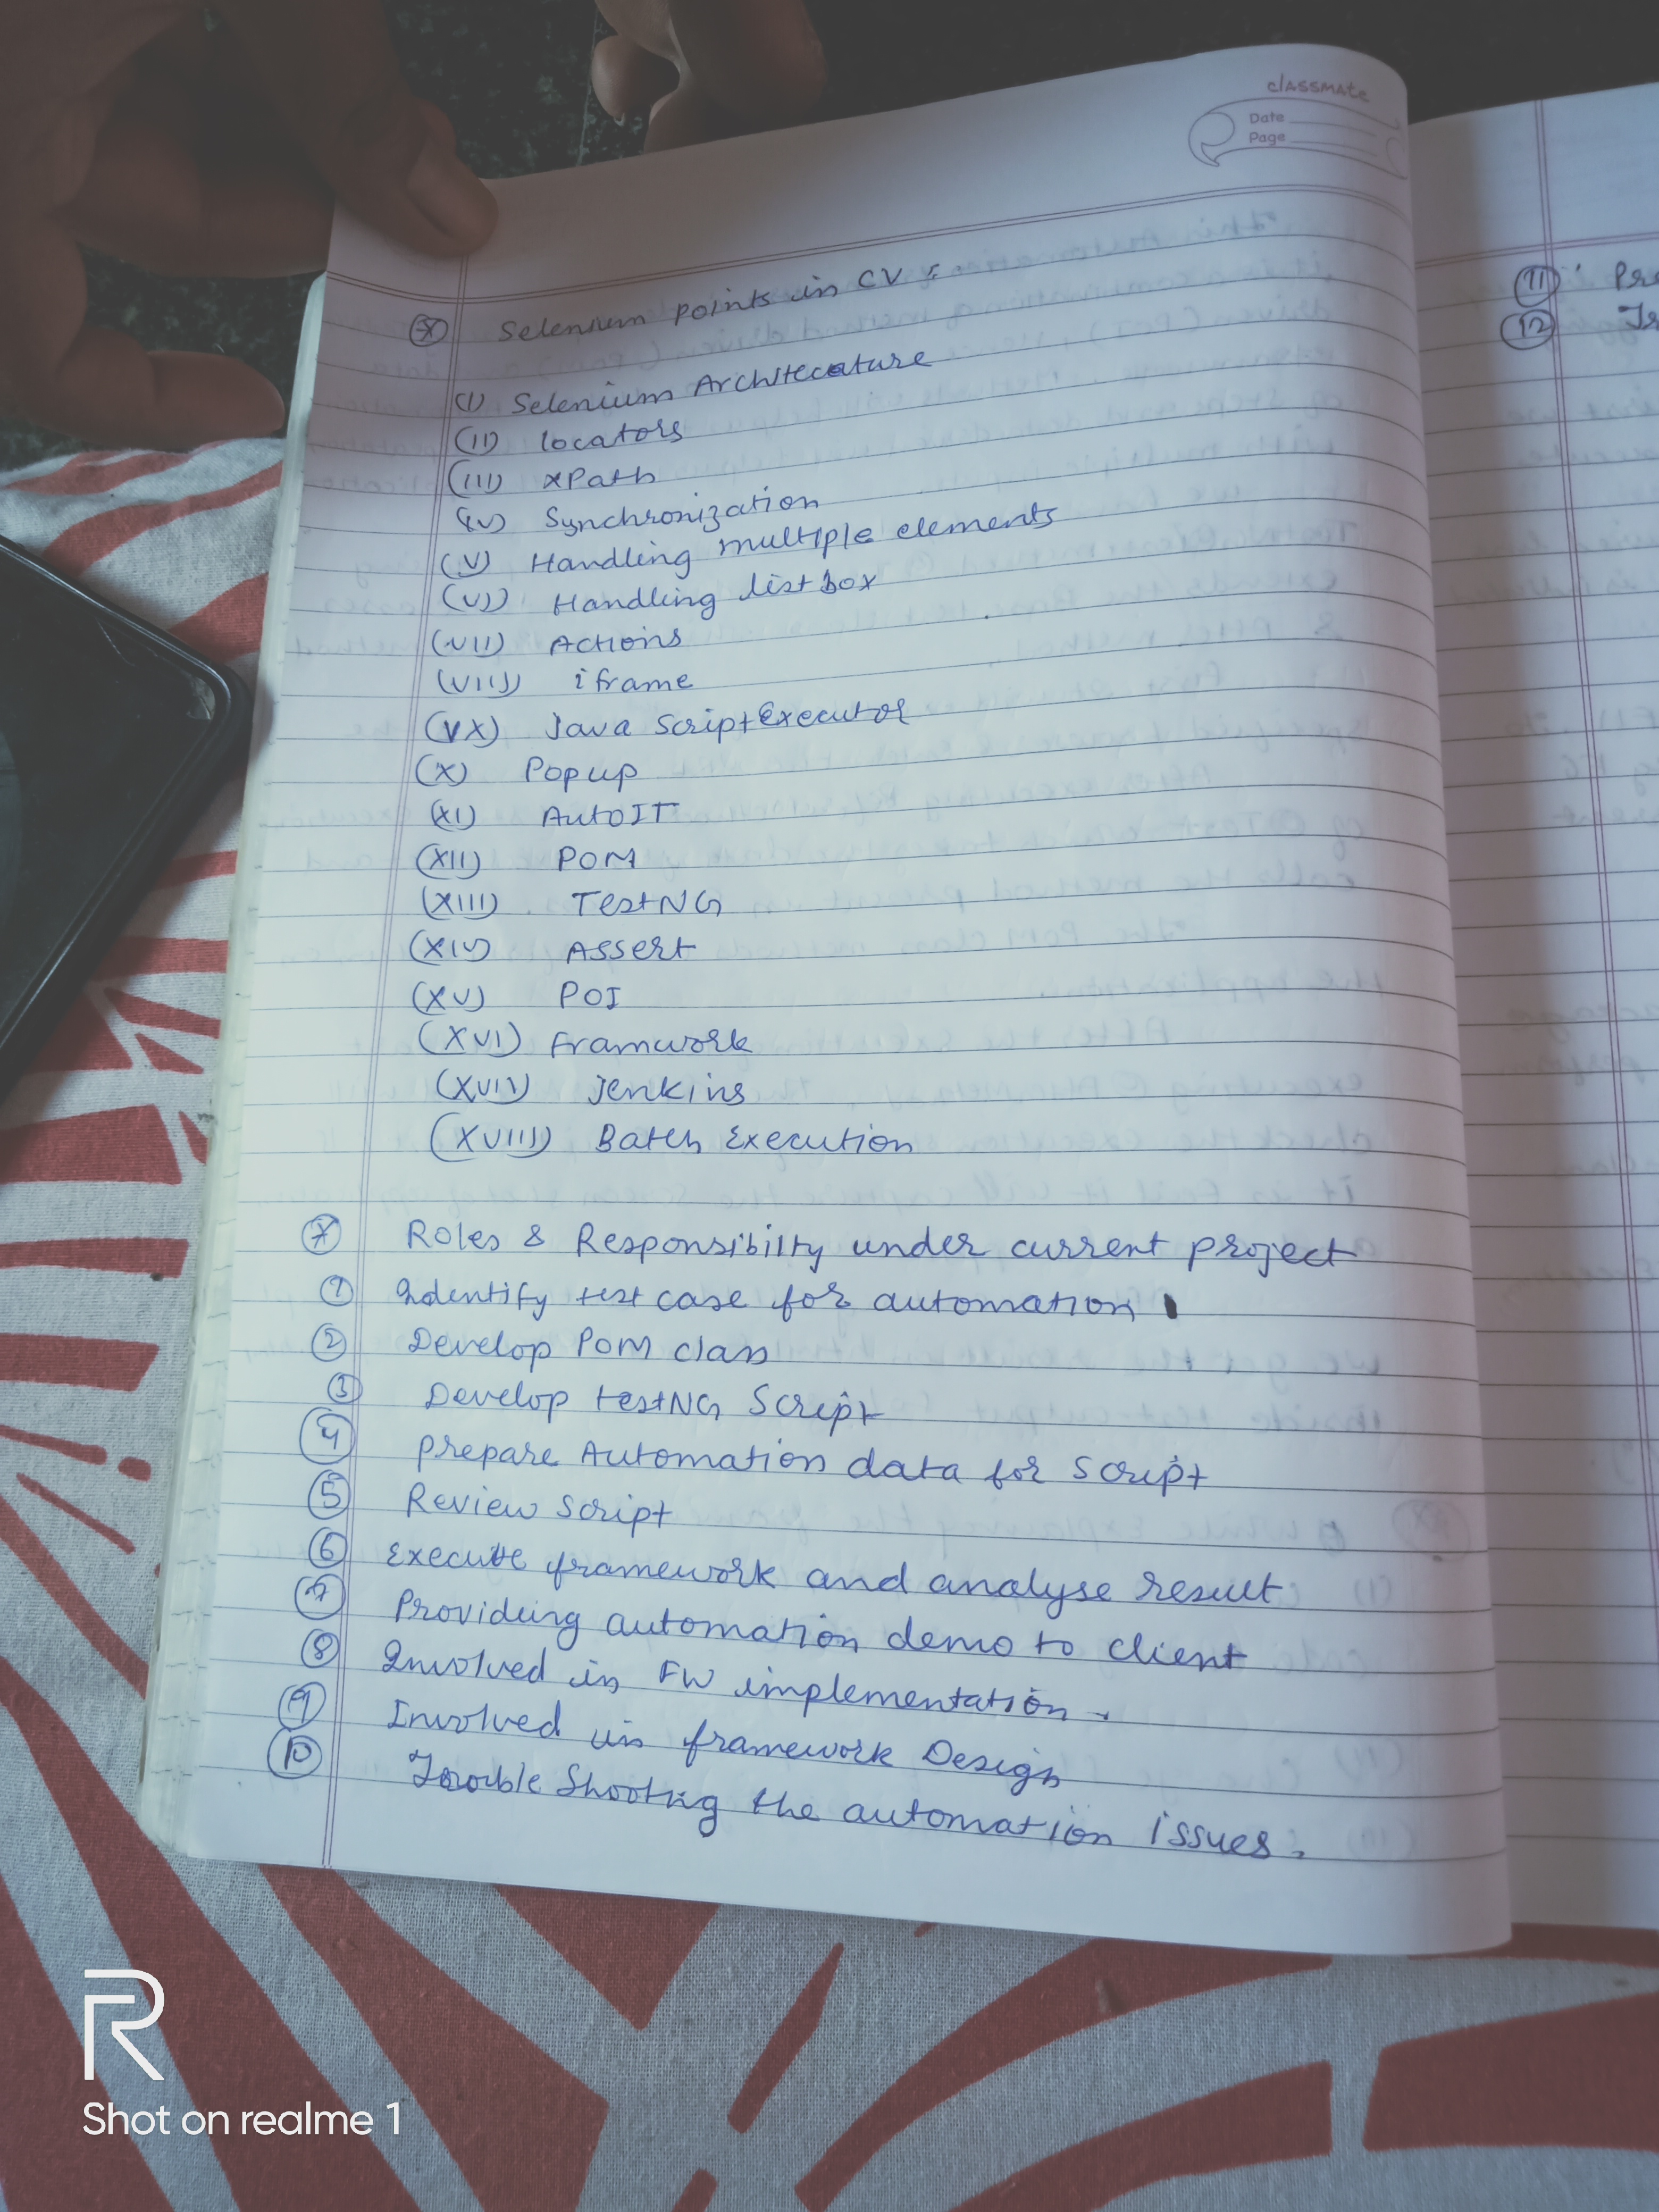 classmate
Date
Page
Selenium points in CV :
(I) Selenium Architecature
(II) locators
(III) xPath
(IV) Synchronization
(V) Handling multiple elements
(VI) Handling listbox
(VII) Actions
(VIII) iframe
(VX) Java ScriptExecutor
(X) Popup
(XI) AutoIT
(XII) POM
(XIII) TestNG
(XIV) Assert
(XV) POI
(XVI) Framwork
(XVII) Jenkins
(XVIII) Batch Execution
Roles & Responsibilty under current project
1 Identify test case for automation
2 Develop POM class
3 Develop testNG Script
4 Prepare Automation data for Script
5 Review Script
6 Execute framework and analyse result
7 Providing automation demo to client
8 Involved in FW implementation.
9 Involved in framework Design
10 Trouble Shooting the automation issues.
11
12
R
Shot on realme 1